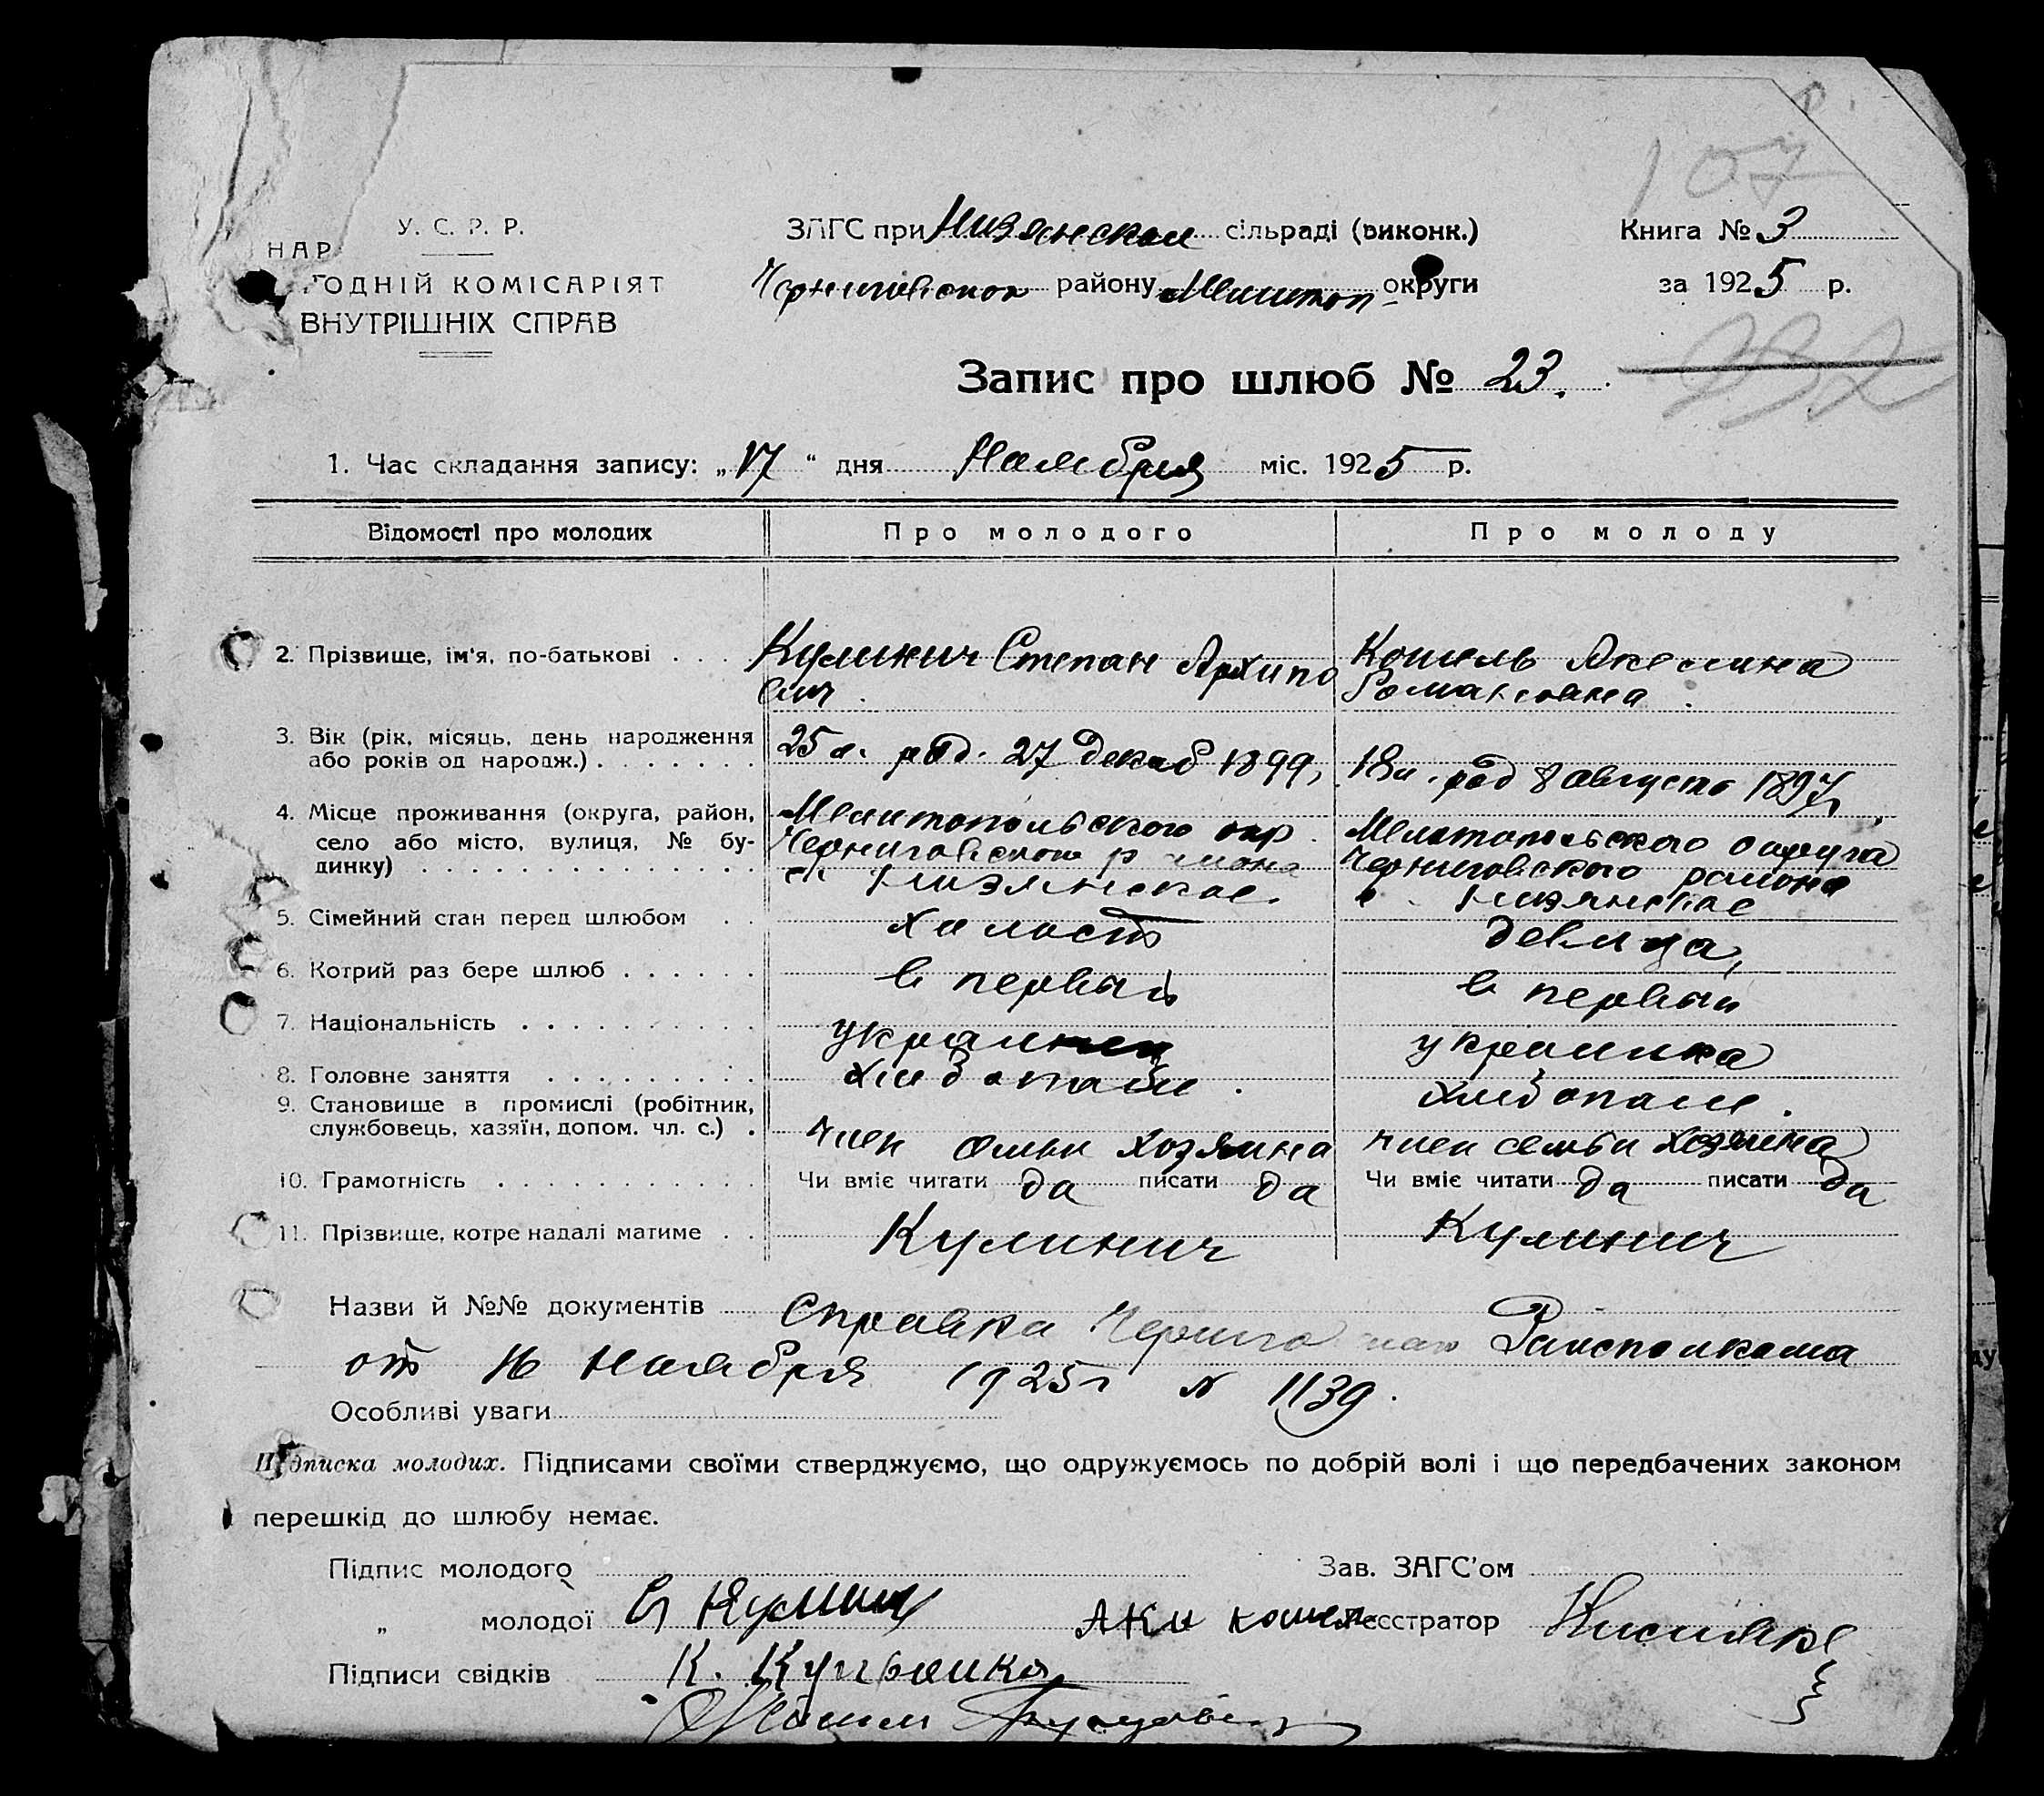 107
У. С. Р. Р.
НАР
ОДНІЙ КОМІСАРІЯТ
ВНУТРІШНІХ СПРАВ
ЗАГС при Низянском сільраді (виконк.)
Черниговском району Мелитоп- округи
Книга № 3
за 1925 р.
232
Запис про шлюб № 23.
1. Час складання запису: „17" дня Ноября міс. 1925 р.
Відомості про молодих Про молодого Про молоду
2. Прізвище, ім'я, по-батькові . . . Кулинич Степан Архипо Кошель Акелина
вич. Романовна.
3. Вік (рік, місяць, день народження 25 л. род. 27 декаб 1899, 18 л. род 8 августа 1897 г,
або років од народж.) . . . . . . .
4. Місце проживання (округа, район, Мелитопольского окр. Мелитопольского округа
село або місто, вулиця, № бу- Черниговского района Черниговского района
динку) . . . . . . . . . . . . . . с. Низянское. с. Низянское
5. Сімейний стан перед шлюбом . . холост девица,
6. Котрий раз бере шлюб . . . . . . в первый в первый
7. Національність . . . . . . . . . . украинец украинка
8. Головне заняття . . . . . . . . . хлебопаш. хлебопаш.
9. Становище в промислі (робітник,
службовець, хазяїн, допом. чл. с.) . член семьи хозяина член семьи хозяина
10. Грамотність . . . . . . . . . . . Чи вміє читати да писати да Чи вміє читати да писати да
11. Прізвище, котре надалі матиме . . Кулинич Кулинич
Назви й №№ документів Справка Черниго Райисполкома
от 16 ноября 1925 г N 1139.
Особливі уваги
Підписка молодих. Підписами своїми стверджуємо, що одружуємось по добрій волі і що передбачених законом
перешкід до шлюбу немає.
Підпис молодого Зав. ЗАГС'ом
„ молодої С Кулинич Аки кошел еєстратор
Підписи свідків К.